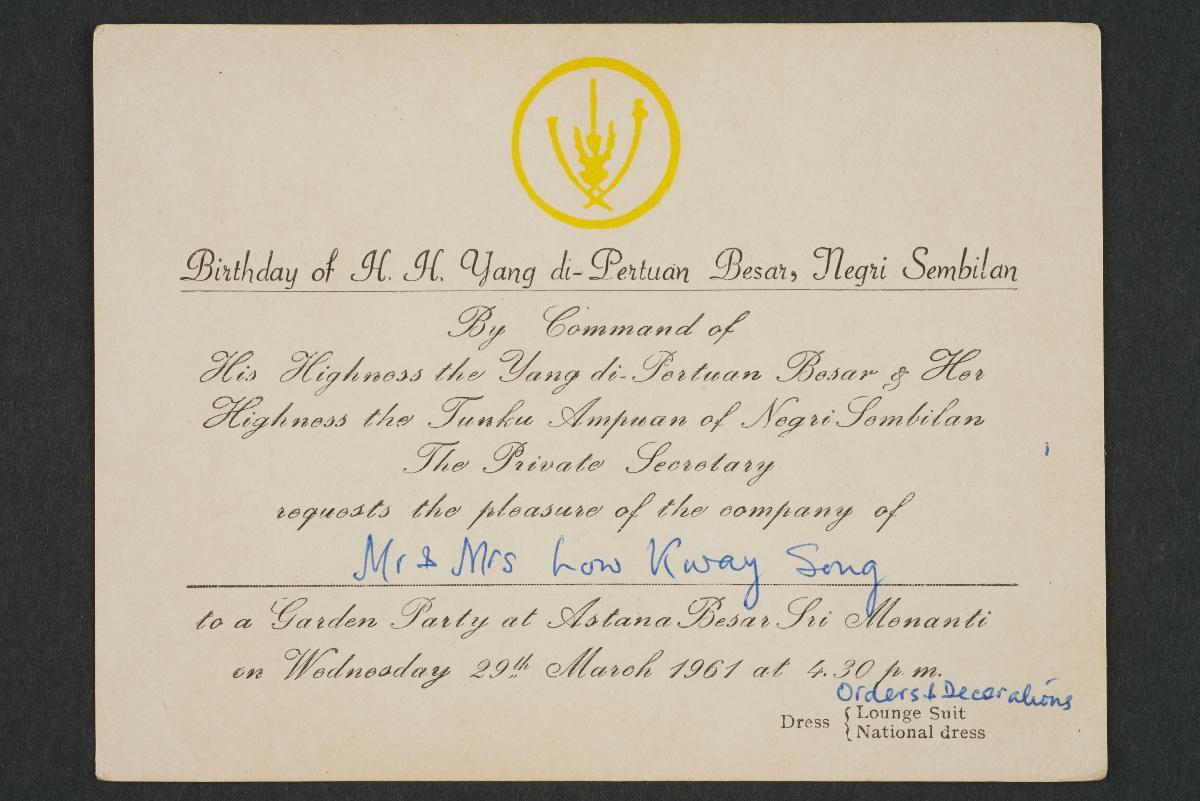 Birthday of H. H. Yang di-Pertuan Besar, Negri Sembilan
By Command of
His Highness the Yang di-Pertuan Besar & Her
Highness the Tunku Ampuan of Negri Sembilan
The Private Secretary
requests the pleasure of the company of
Mr & Mrs Low Kway Song
to a Garden Party at Astana Besar Sri Menanti
on Wednesday 29th March 1961 at 4.30 p.m.
Orders & Decorations
Dress { Lounge Suit
National dress